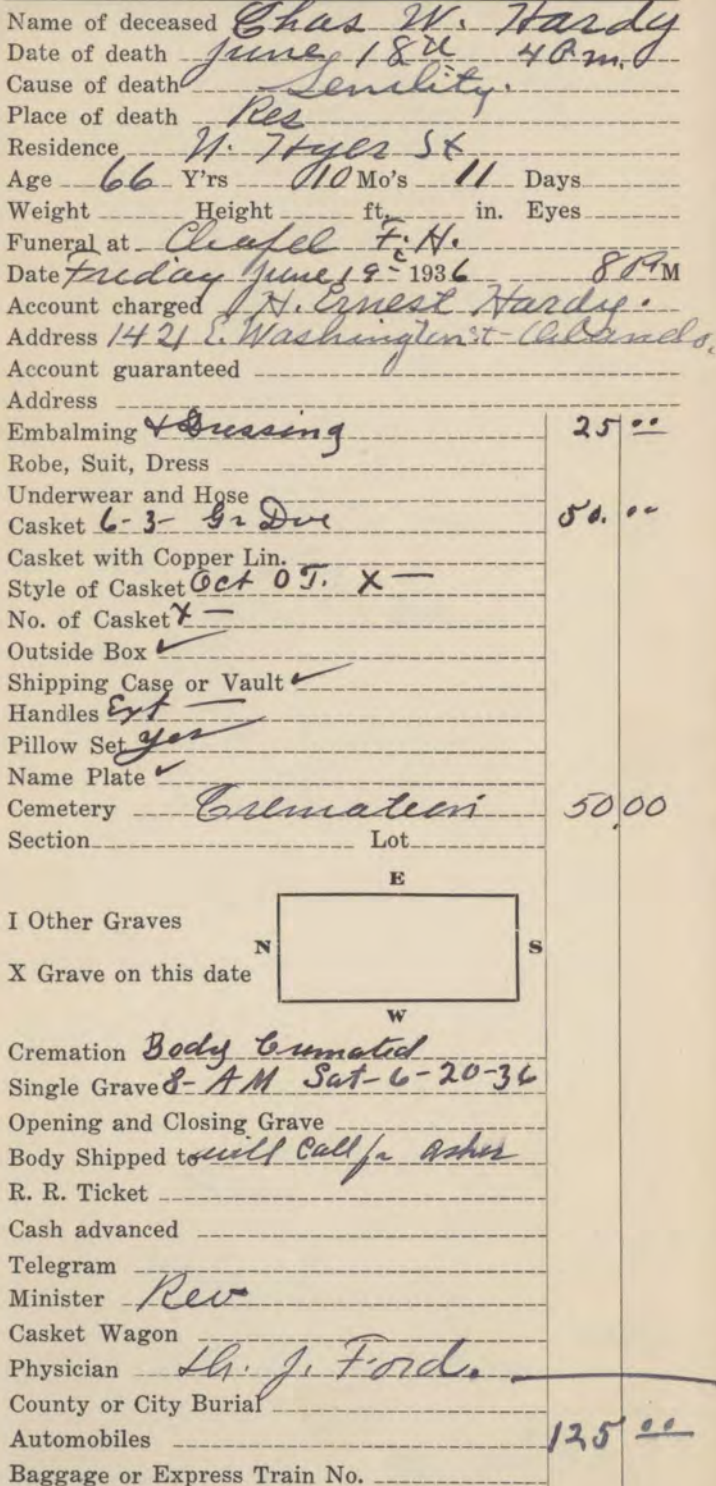 Name of deceased Chas W. Hardy
Date of death June 18th 4 P.m.
Cause of death Senility.
Place of death Res
Residence N. Hyer St
Age 66 Y'rs 10 Mo's 11 Days
Weight Height ft. in. Eyes
Funeral at Chapel F. H.
Date Friday June 19 1936 8 PM
Account charged H. Ernest Hardy.
Address 1421 E. Washington St- Orlando.
Account guaranteed
Address
Embalming & Dressing 25 00
Robe, Suit, Dress
Underwear and Hose
Casket 6-3- Gr Doe 50. 00
Casket with Copper Lin.
Style of Casket Oct O T. X —
No. of Casket X —
Outside Box ✓
Shipping Case or Vault ✓
Handles Ext —
Pillow Set yes
Name Plate ✓
Cemetery Cremation 50 00
Section Lot
E
I Other Graves
N S
X Grave on this date
W
Cremation Body Cremated
Single Grave 8- AM Sat- 6-20-36
Opening and Closing Grave
Body Shipped to will call for ashes
R. R. Ticket
Cash advanced
Telegram
Minister Rev
Casket Wagon
Physician J. Ford.
County or City Burial
Automobiles 125 00
Baggage or Express Train No.